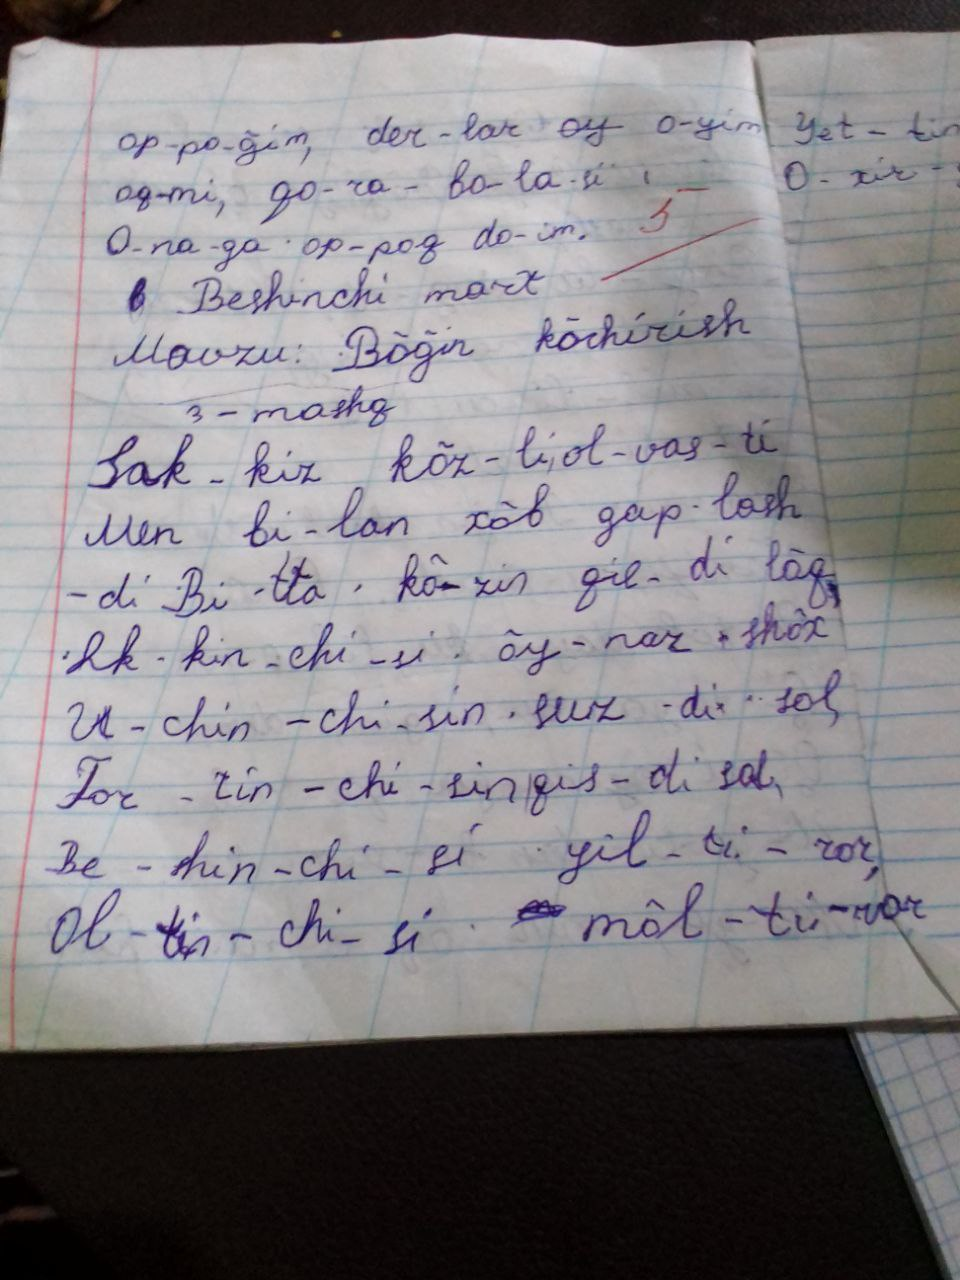 op-po-g̃im, der-lar oy o-yim
oq-mi, qo-ra-bo-la-si
O-na-ga op-poq do-im.
5-
Beshinchi mart
Mavzu: Bõg̃in kõchirish
3-mashq
Sak-kiz kõz-li, ol-vas-ti
Men bi-lan xõb gap-lash
-di Bi-tta kõ-zin qil-di lõq,
Ik-kin-chi-si õy-nar shõx
U-chin-chi-sin suz-di sol,
Tor-tin-chi-sin qis-di sal,
Be-shin-chi-si yil-ti-rar,
Ol-tin-chi-si mõl-ti-rar
Yet-tin
O-xir-